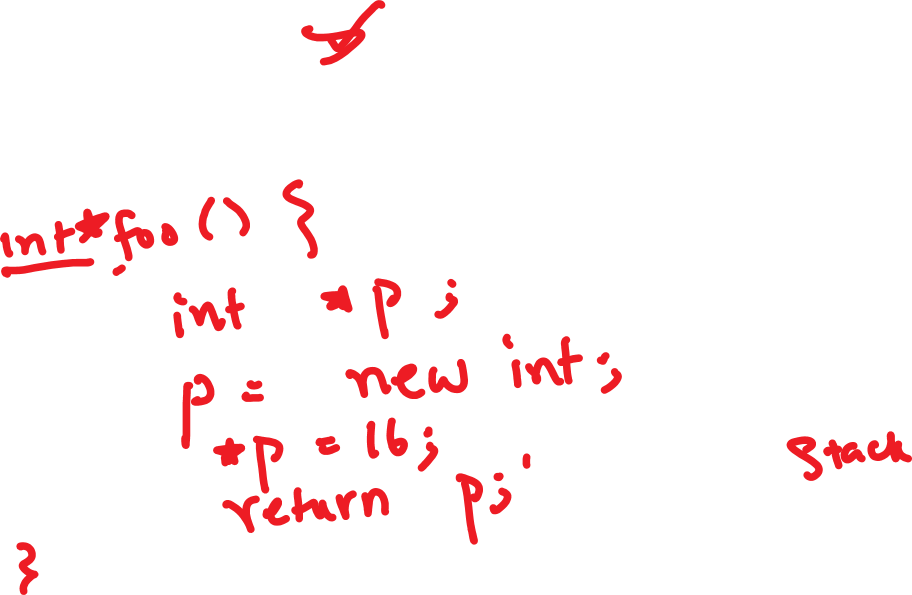 int *foo () {
int *p ;
p = new int ;
*p = 16 ;
return p ;
stack
}